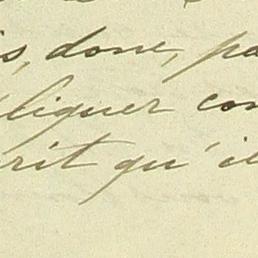 is, donc, pa
liquer con
rit qu'il